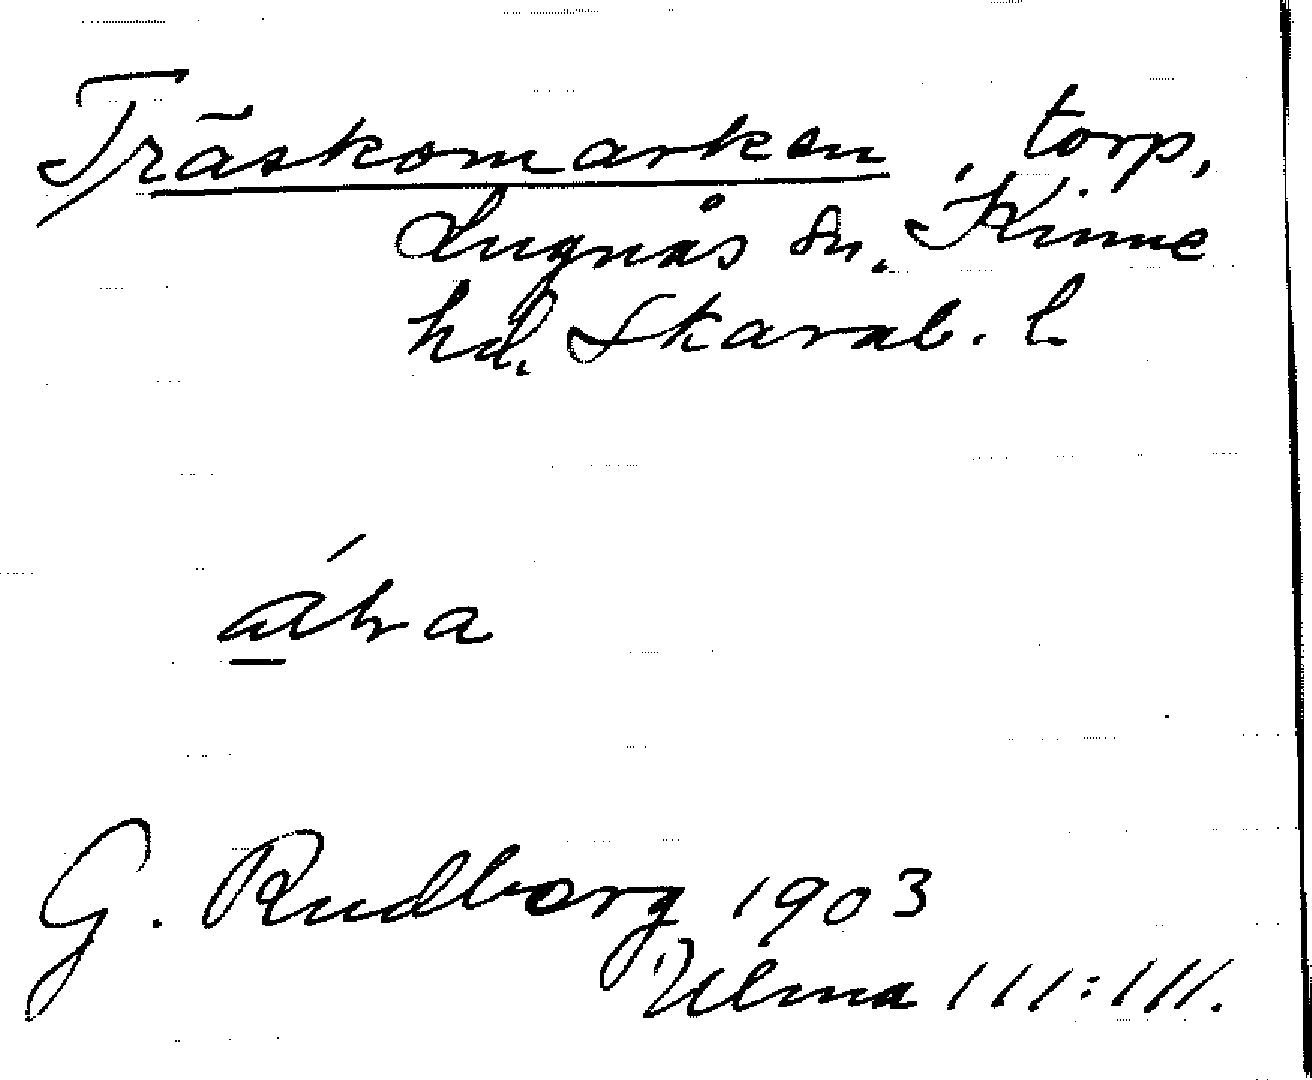 Träskomarken, torp,
Lugnås sn. Kinne
hd. Skarab. l.
G. Rudborg 1903
Ulma 111:111.